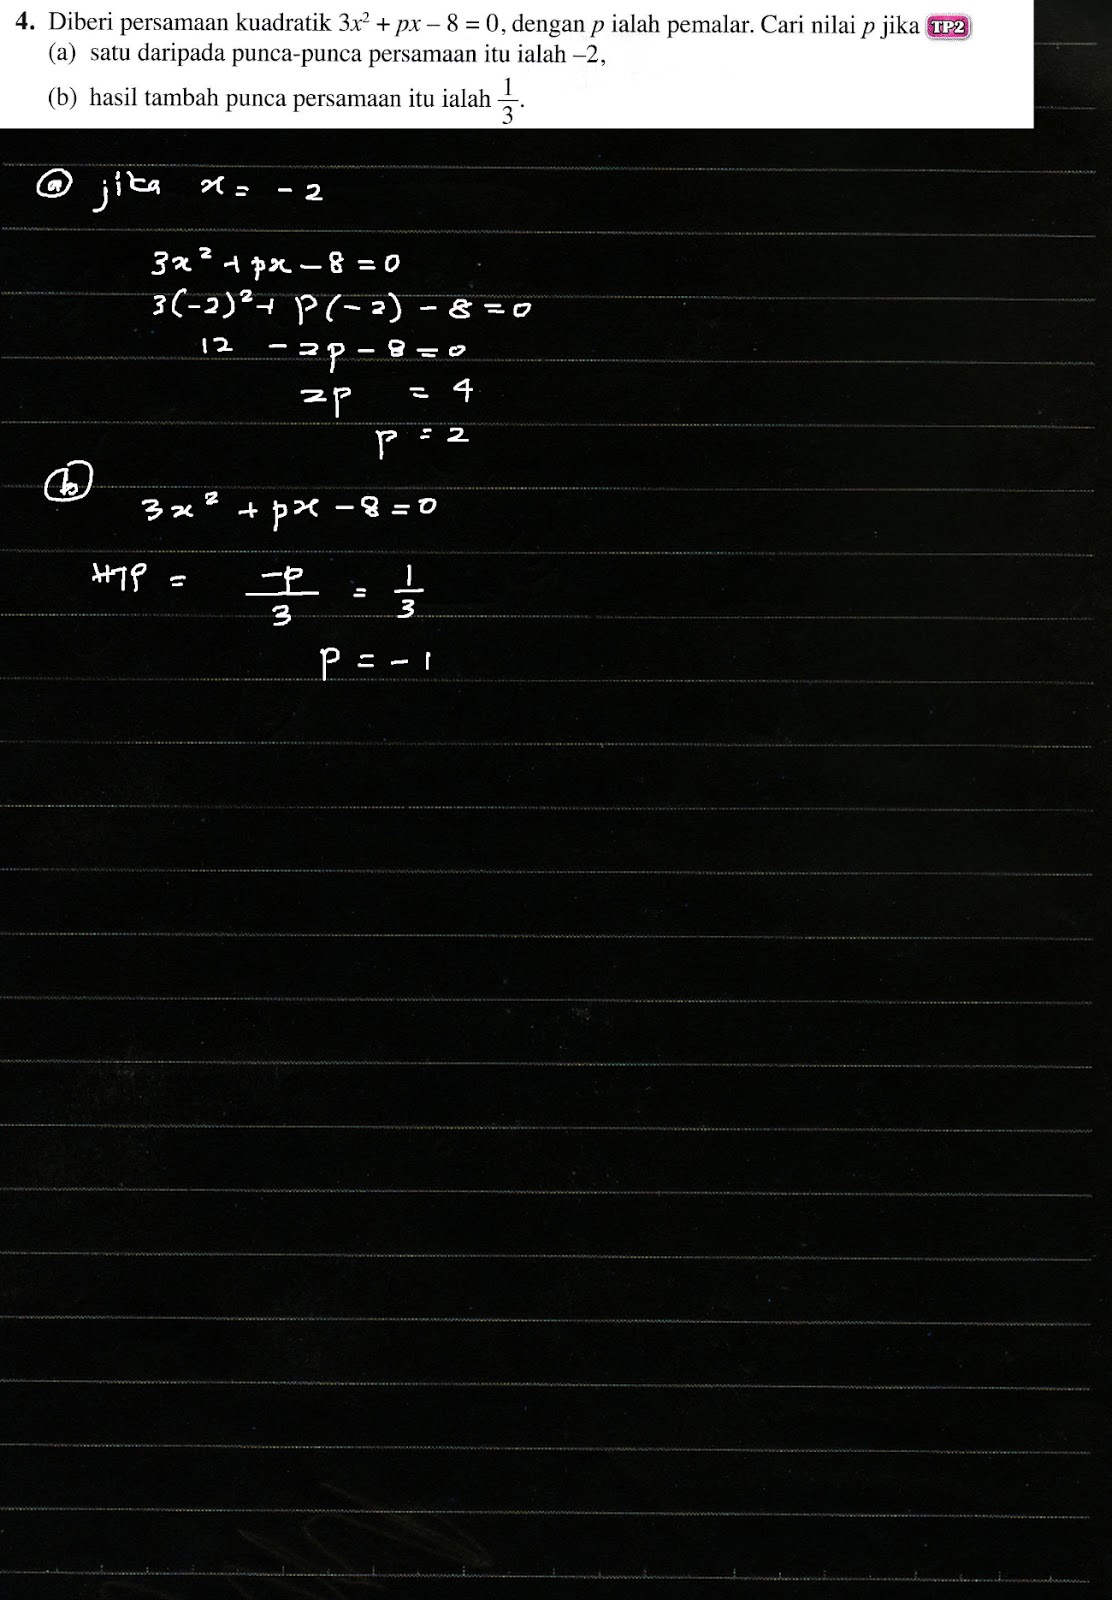 4. Diberi persamaan kuadratik 3x² + px – 8 = 0, dengan p ialah pemalar. Cari nilai p jika TP2
(a) satu daripada punca-punca persamaan itu ialah –2,
(b) hasil tambah punca persamaan itu ialah 1/3.
(a) jika x = - 2
3x² + px - 8 = 0
3(-2)² + p(-2) - 8 = 0
12 - 2p - 8 = 0
2p = 4
p = 2
(b)
3x² + px - 8 = 0
HTP = -p/3 = 1/3
p = - 1